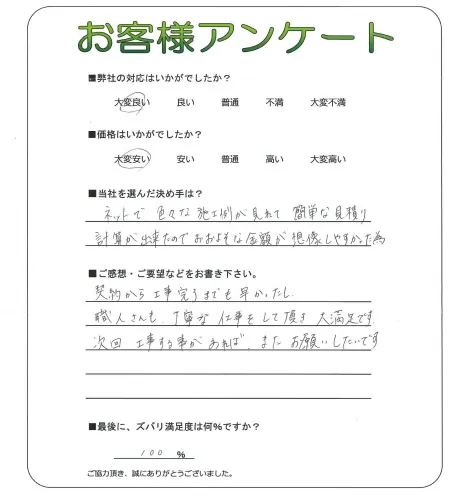 お客様アンケート
■弊社の対応はいかがでしたか？
大変良い 良い 普通 不満 大変不満
■価格はいかがでしたか？
大変安い 安い 普通 高い 大変高い
■当社を選んだ決め手は？
ネットで 色々な施工例が見れて 簡単な見積り
計算が出来たのでおおよそな金額が想像しやすかった為
■ご感想・ご要望などをお書き下さい。
契約から工事完了までも早かったし、
職人さんも、丁寧な仕事をして頂き大満足です。
次回 工事する事があれば、またお願いしたいです
■最後に、ズバリ満足度は何%ですか？
100 %
ご協力頂き、誠にありがとうございました。